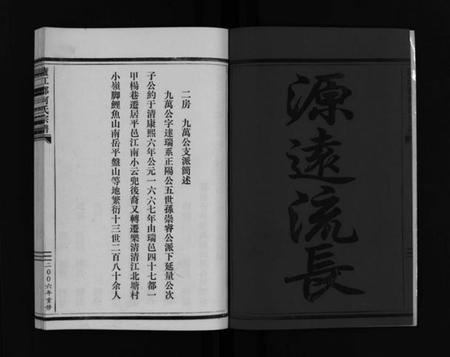 源遠流長
二房 九萬公支派簡述
九萬公字達瑞系正陽公五世孫崇睿公派下延量公次
子公約于清康熙六年公元一六六七年由瑞邑四十七都一
甲楊巷遷居平邑江南小云兜後裔又轉遷樂清清江北塘村
小嶺脚鯉魚山南岳平盤山等地繁衍十三世二百八十余人
江郡何氏宗譜
二00六年重修